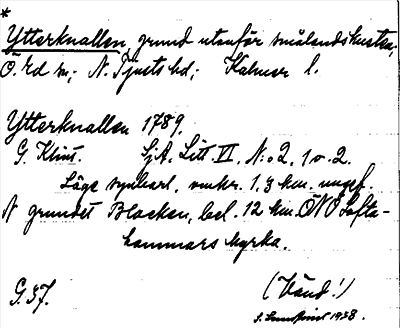 *
Ytterknallen, grund utanför smålandskusten;
Ö. Ed sn; N. Tjusts hd; Kalmar l.
Ytterknallen 1789.
G. Klint. Sj.A. Litt. VI, N:o 2, 1 o. 2.
Läge synbart, omkr. 1,3 km. ungef.
N grundet Blacken, bel. 12 km. ÖNÖ Lofta-
hammars kyrka.
G. 37. (Vänd!)
1938.